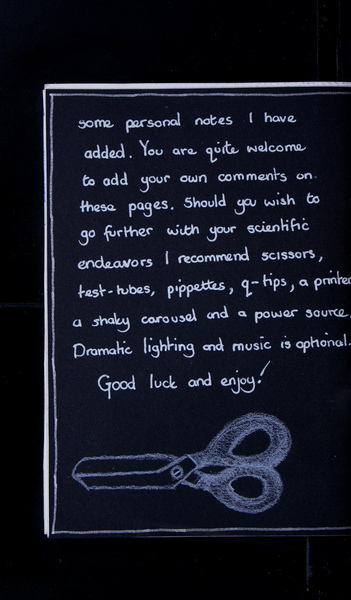 some personal notes I have
added. You are quite welcome
to add your own comments on
these pages. Should you wish to
go further with your scientific
endeavors I recommend scissors,
test-tubes, pippettes, q-tips, a printer
a shaky carousel and a power source.
Dramatic lighting and music is optional.
Good luck and enjoy!